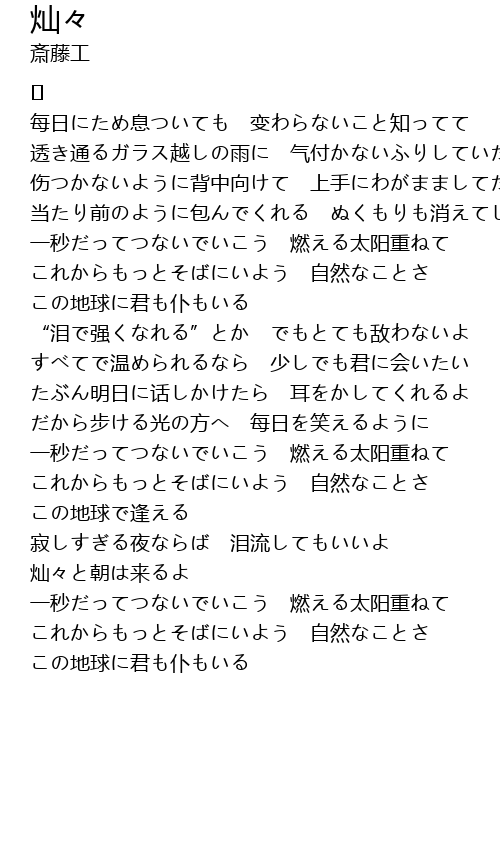 灿々
斎藤工
毎日にため息ついても　変わらないこと知ってて
透き通るガラス越しの雨に　気付かないふりしていた
伤つかないように背中向けて　上手にわがまましてた
当たり前のように包んでくれる　ぬくもりも消えてし
一秒だってつないでいこう　燃える太阳重ねて
これからもっとそばにいよう　自然なことさ
この地球に君も仆もいる
“泪で强くなれる”とか　でもとても敌わないよ
すべてで温められるなら　少しでも君に会いたい
たぶん明日に话しかけたら　耳をかしてくれるよ
だから歩ける光の方へ　每日を笑えるように
一秒だってつないでいこう　燃える太阳重ねて
これからもっとそばにいよう　自然なことさ
この地球で逢える
寂しすぎる夜ならば　泪流してもいいよ
灿々と朝は来るよ
一秒だってつないでいこう　燃える太阳重ねて
これからもっとそばにいよう　自然なことさ
この地球に君も仆もいる